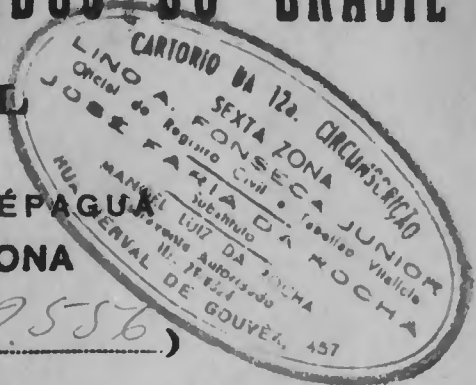 DOS DO BRASIL
L
ÉPAGUÁ
ONA
9.556)
CARTORIO DA 12a. CIRCUNSCRIÇÃO
SEXTA ZONA
LINO A. FONSECA JUNIOR
Oficial do Registro Civil e Tabelião Vitalicio
JOSÉ FARIA DA ROCHA
Substituto
MANOEL LUIZ DA ROCHA
Autorizado
RUA ERVAL DE GOUVÊA, 457